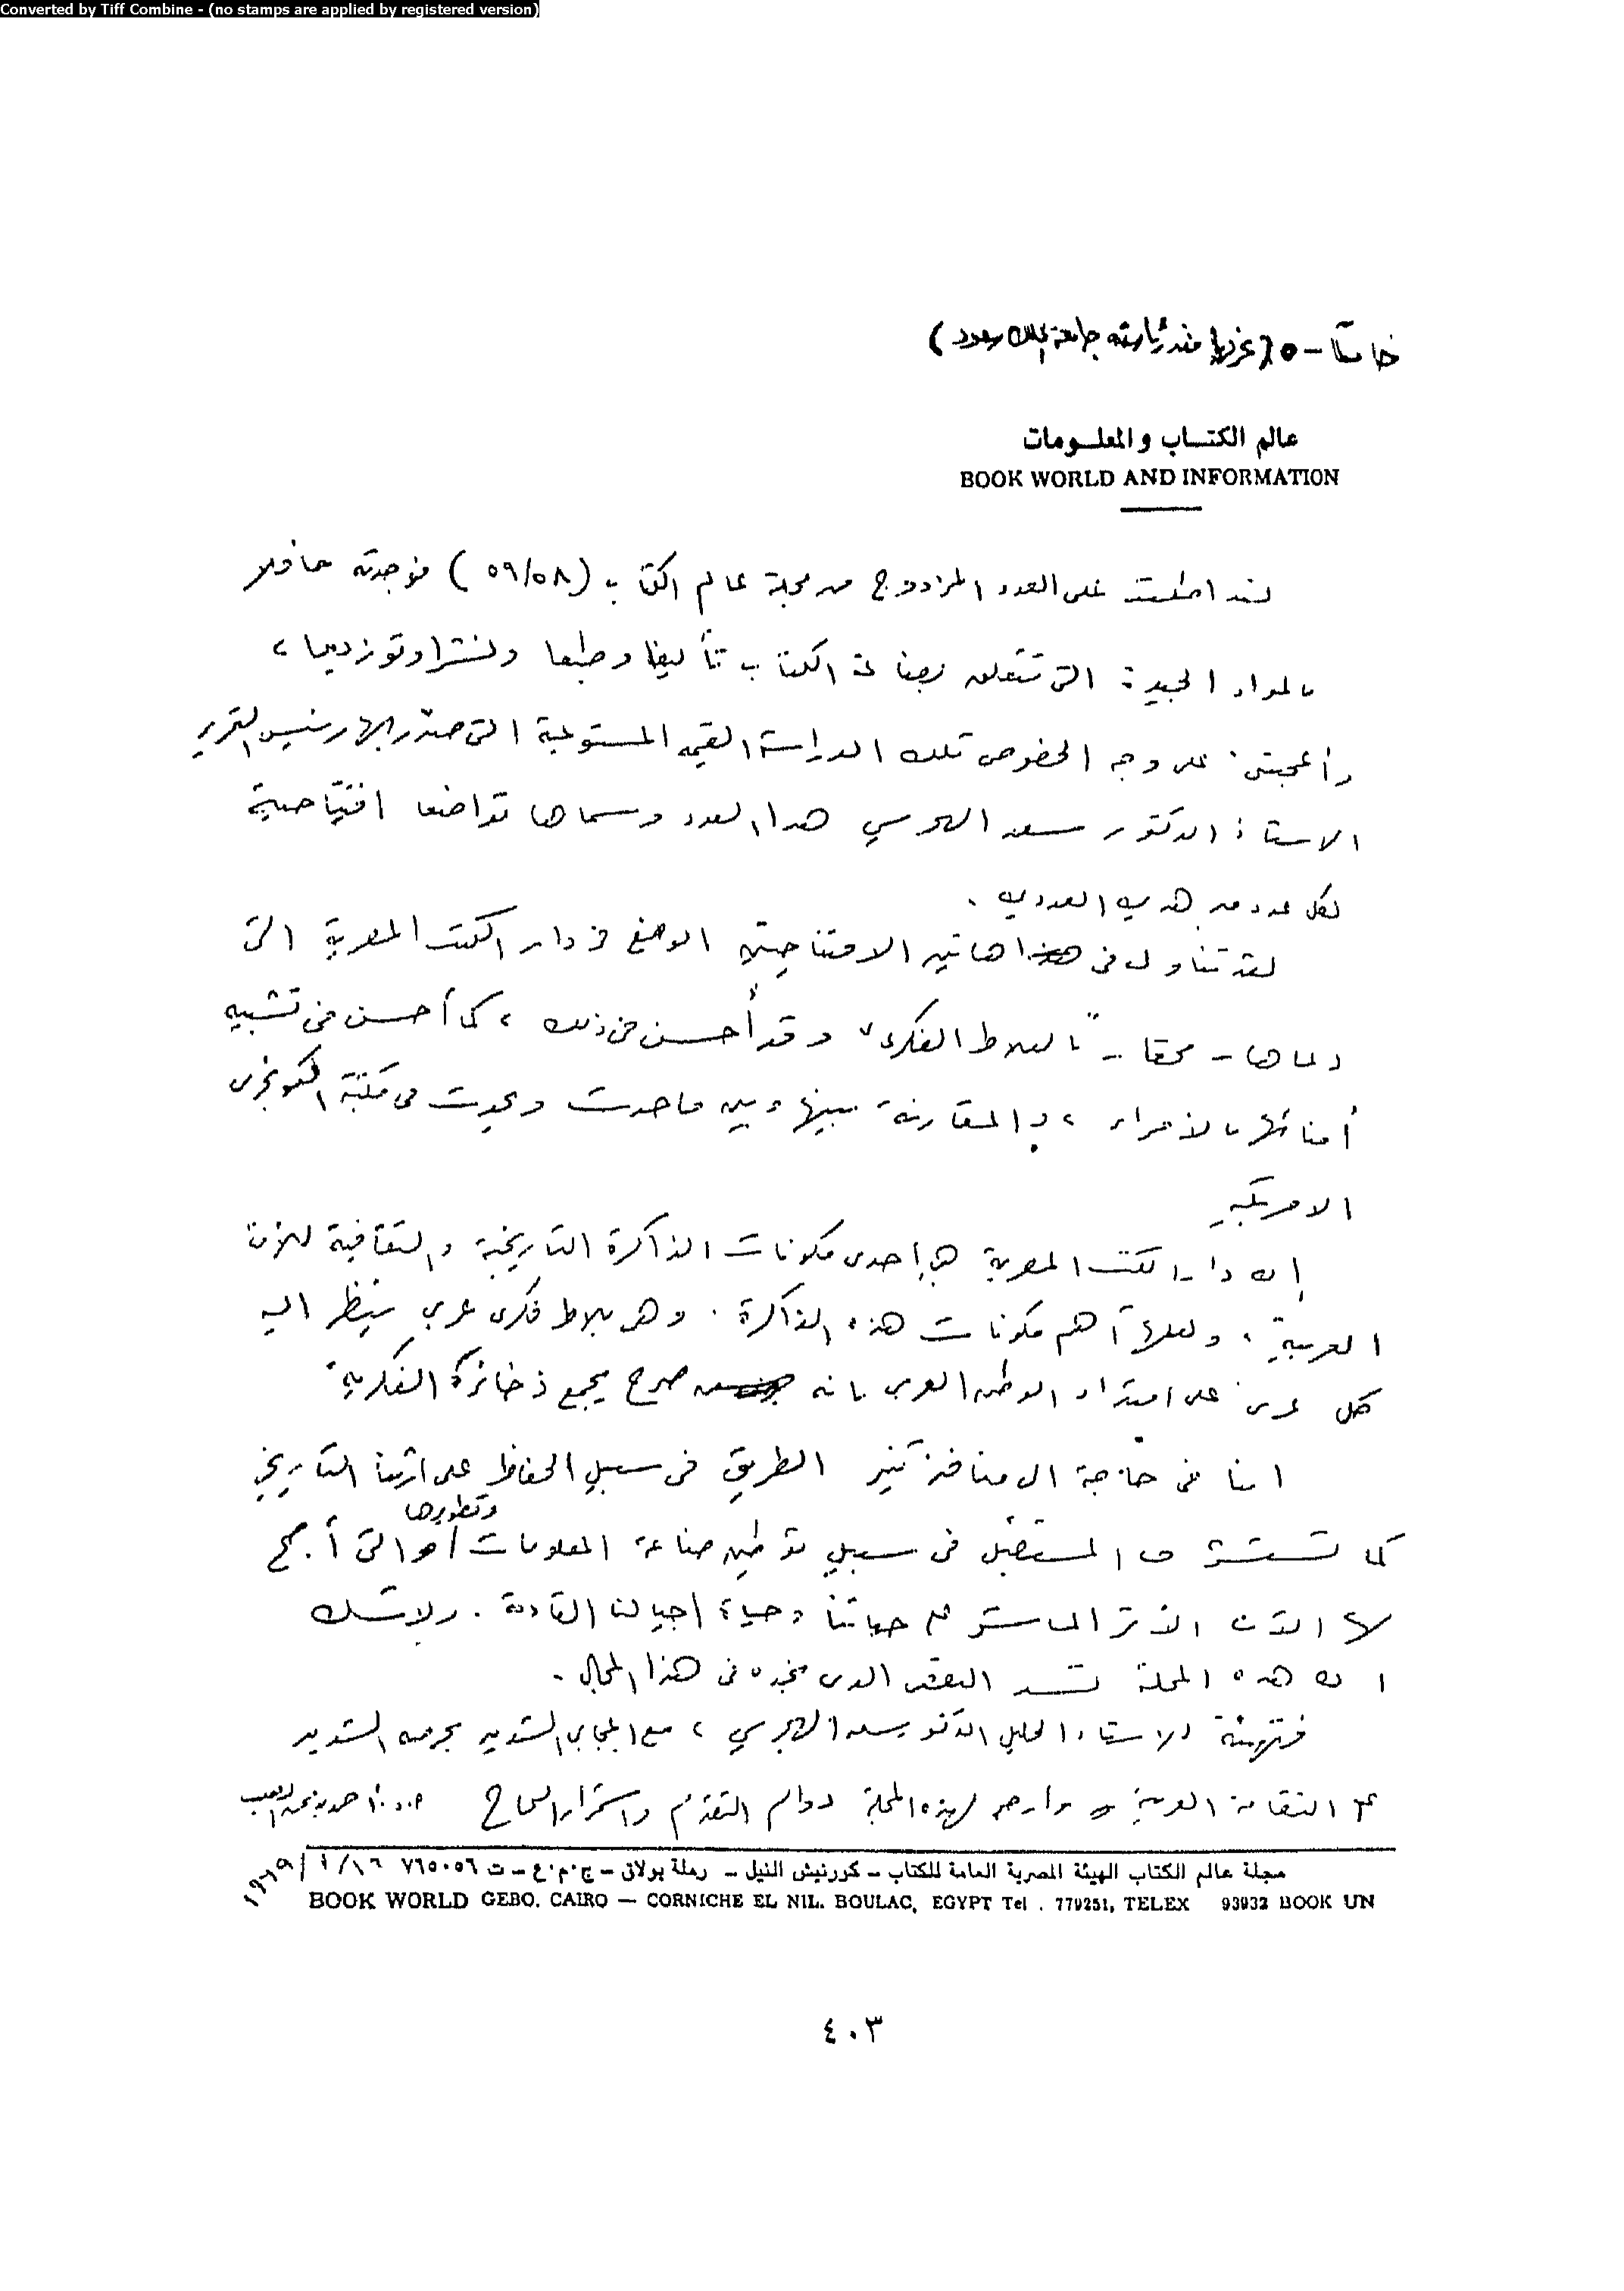 Converted by Tiff Combine - (no stamps are applied by registered version)
خامسًا - ٥ ( جامعة الملك سعود )
عالم الكتاب والمعلومات
BOOK WORLD AND INFORMATION
لقد اطلعت على العدد المزدوج من مجلة عالم الكتاب (٥٩/٥٨) فوجدته حافلا
بالمواد الجيدة التى تتعلق بصناعة الكتاب تأليفا وطبعا ونشرا وتوزيعا ،
وأعجبتنى على وجه الخصوص تلك الدراسة القيمه المستوعبة التى صدر بها رئيس التحرير
الاستاذ الدكتور سعد الهجرسي هذا العدد وسماها تواضعا افتتاحية
لكل عدد من هذين العددين .
لقد تناول فى هاتين الافتتاحيتين الوضع فى دار الكتب المصرية التى
دعاها - محقا - "بالبلاط الفكرى" وقد أحسن فى ذلك ، كما أحسن فى تشبيه
أمنائها بالأمراء ، والمقارنة بينها وبين ما حدث ويحدث فى مكتبة الكونجرس
الامريكية
إن دار الكتب المصرية هى إحدى مكونات الذاكرة التاريخية والثقافية للأمة
العربية ، ولعلها أهم مكونات هذه الذاكرة . وهى بلاط فكرى عربي ينظر اليه
كل عربى على امتداد الوطن العربى بانه صرح يجمع ذخائره الفكرية
اننا فى حاجة الى منافذ تنير الطريق فى سبيل الحفاظ على ارثنا التاريخى
كما تستشرف المستقبل فى سبيل توطين صناعة المعلومات وتطويرها والتى أصبح
لها الآن الأثر الملموس فى حياتنا وحياة اجيالنا القادمة . ولا شك
ان هذه المجلة تسد النقص الذى نجده فى هذا المجال .
فتهنئة للاستاذ الجليل الدكتور سعد الهجرسي ، مع اعجابى الشديد بحرصه الشديد
على الثقافة العربية وارجو لهذه المجلة دوام التقدم واستمرار النجاح
مجلة عالم الكتاب الهيئة المصرية العامة للكتاب - كورنيش النيل - رملة بولاق - ج.م.ع - ت ٧٦٥٠٥٦
BOOK WORLD GEBO. CAIRO — CORNICHE EL NIL. BOULAC, EGYPT Tel . 779251, TELEX 93932 BOOK UN
٤٠٣